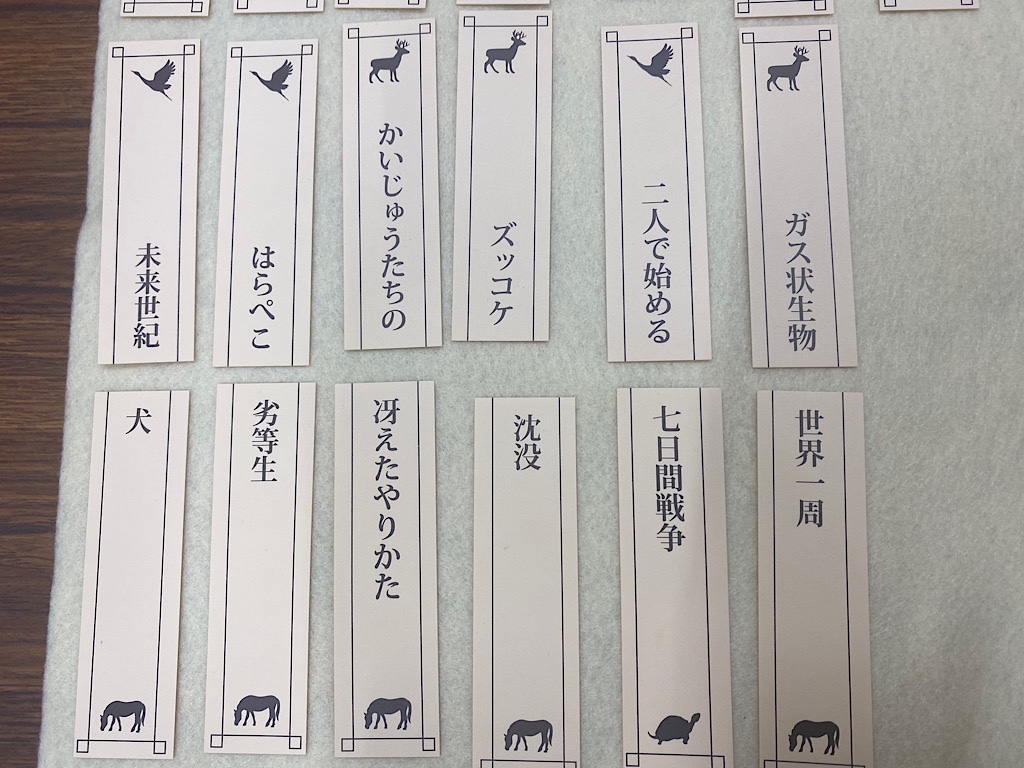 未来世紀
はらぺこ
かいじゅうたちの
ズッコケ
二人で始める
ガス状生物
犬
劣等生
冴えたやりかた
沈没
七日間戦争
世界一周